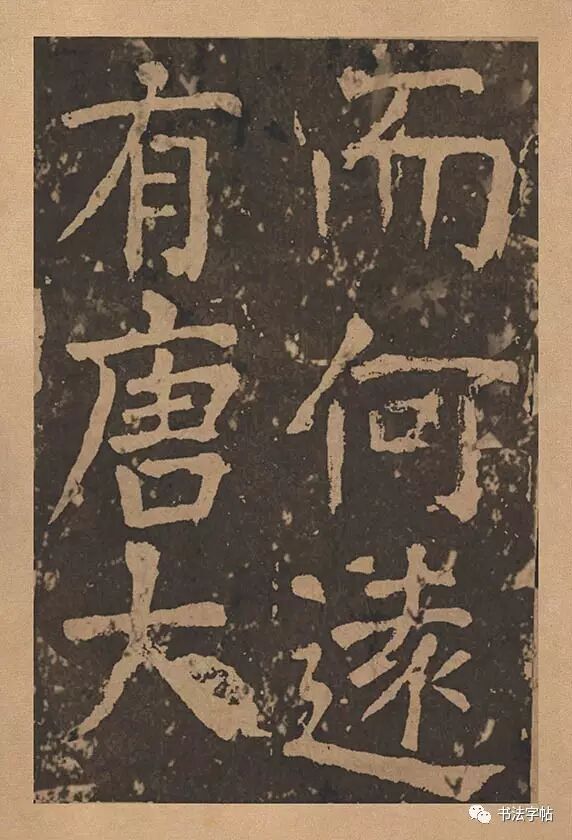 而何遠
有唐大
书法字帖